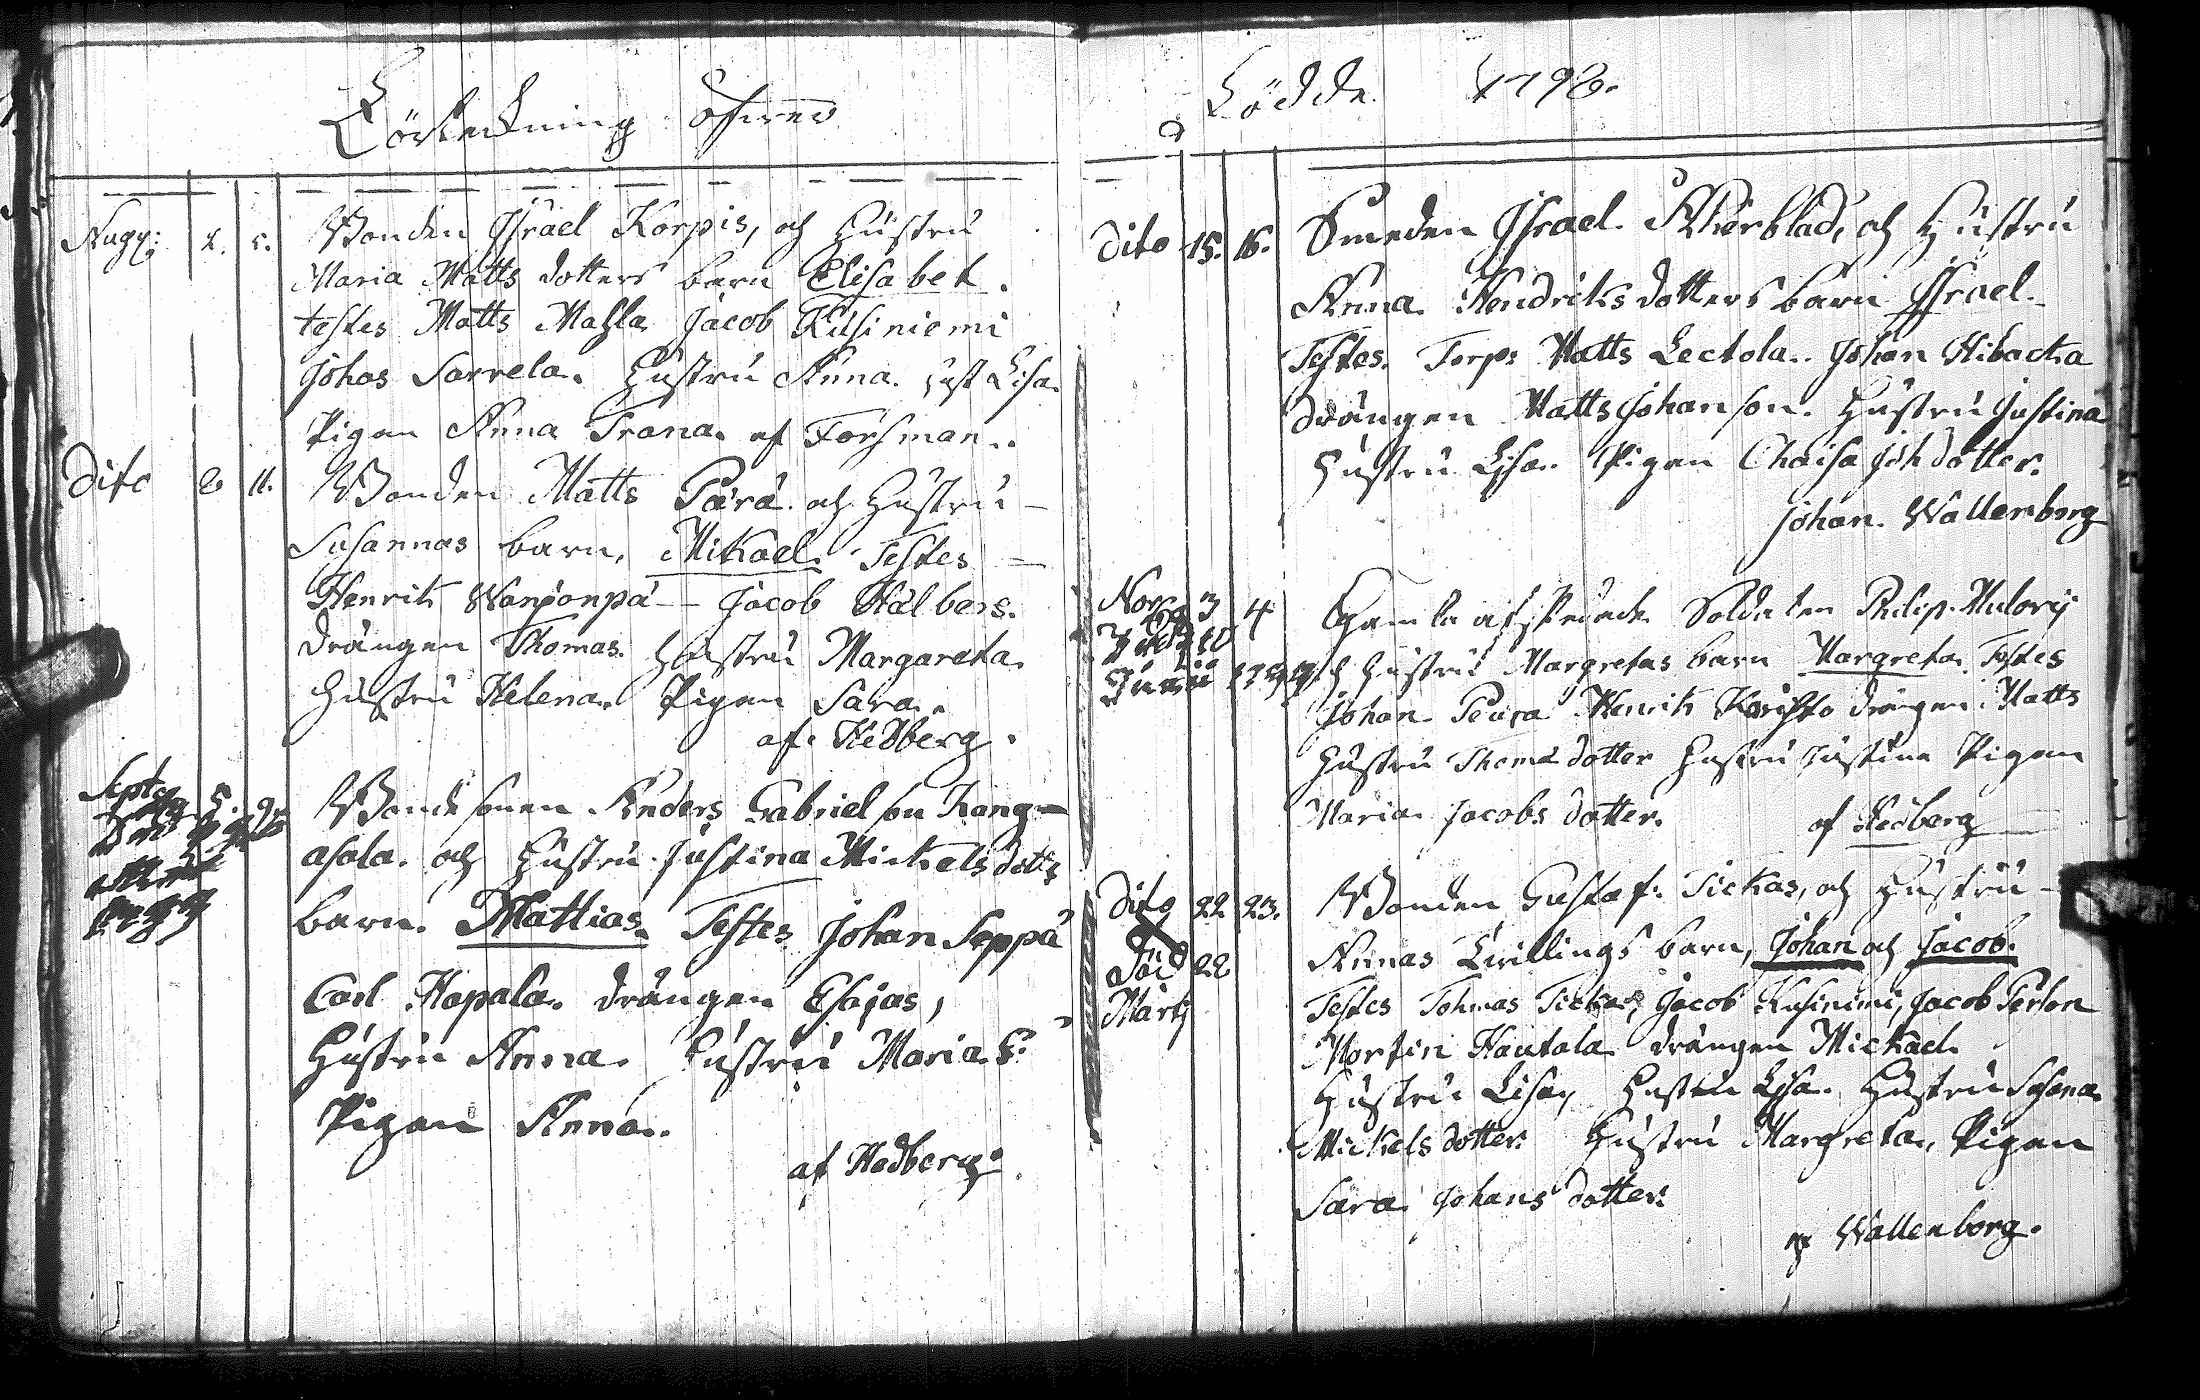 Förteckning öfwer
Födde 1798.
Augg: 2. 5. Bonden Israel Korpis, och Hustru
Maria Matts dotters barn Elisabet.
testes Matts Mahla Jacob Kusiniemi
Johas Sarrela. Hustru Anna. Hust Lisa.
Pigan Anna Trana. af Forsman..
Dito 8 11. Bonden Matts Pärä. och Hustru
Susannas barn, Mikael. Testes
Henrik Wanjonpä - Jacob Kälbers.
Drängen Thomas. Hustru Margareta.
Hustru Helena. Pigan Sara.
af. Hedberg.
Septr 5. 9. Bonde sonen Anders Gabriel son Kang-
asola. och Hustru Justina Mickels dotts
barn. Mattias. Testes Johan Seppä
Carl Hapala. Drängen Esajas,
Hustru Anna. Hustru Maria.
Pigan Anna.
af Hedberg.
Dito 15. 16. Smeden Israel. Åkerblad, och Hustru
Anna Hendriks dotters barn Israel.
Testes. Torp: Matts Lectola. Johan Wibacka
Drängen Matts Johanson. Hustru Justina
Hustru Lisa. Pigan Chaisa Joh dotter.
Johan. Wallenberg
Nov 3 4 Gamla afskedade Soldaten Philip. Mulorij
och Hustru Margretas barn Margreta. Testes
Junii 1799
Johan Peura Henrik Karhto drängen. Matts
Hustru Thoma dotter Hustru Justina Pigan
Maria Jacobs dotter. af Hedberg
Dito 22 23. Bonden Gustaf: Tickas, och Hustru
Annas Twillings barn, Johan och Jacob.
Död 22
Martj
Testes Tohmas Tickas, Jacob Kusinimi, Jacob Person
Mortin Hautala drängen Mickael.
Hustru Lisa, Hustru Lisa. Hustru Susana
Mickels dotter. Hustru Margreta, Pigan
Sara Johans dotter.
af Wallenborg.